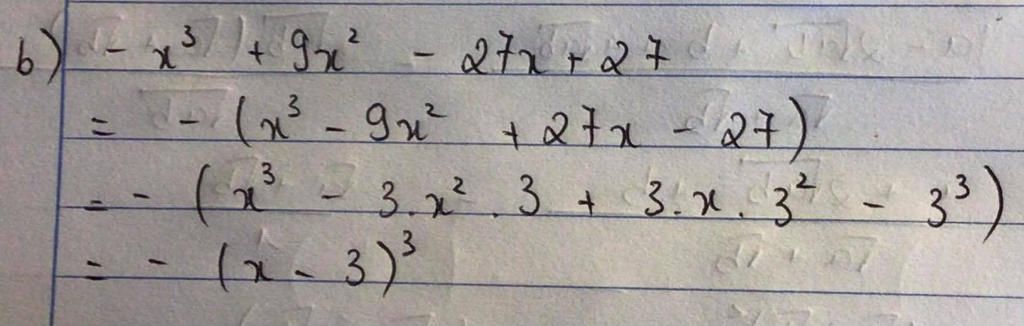 b) - x³ + 9x² - 27x + 27
= - (x³ - 9x² + 27x - 27)
= - (x³ - 3.x².3 + 3.x.3² - 3³)
= - (x - 3)³